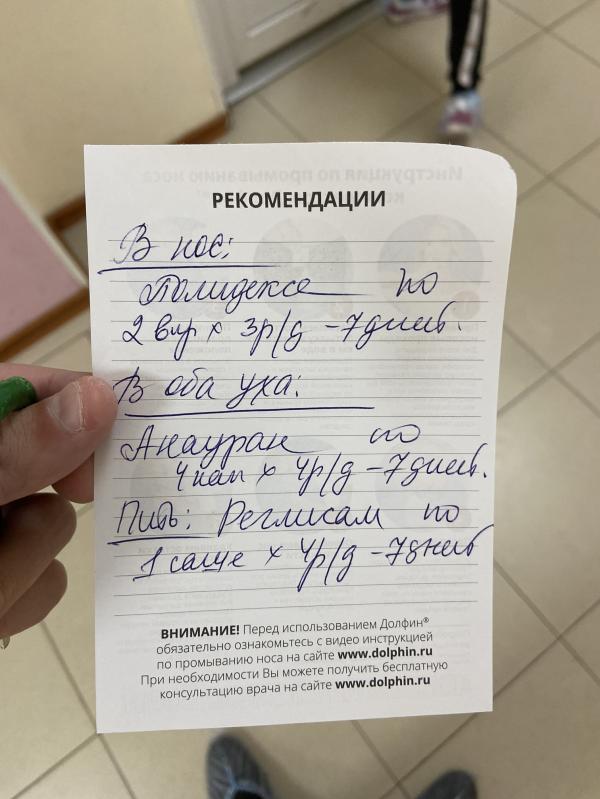 РЕКОМЕНДАЦИИ
В нос:
Полидекса по
2 впр х 3р/д – 7 дней.
В оба уха:
Анауран по
4 кап х 4р/д – 7 дней.
Пить: Реглисам по
1 саше х 4р/д – 7 дней
ВНИМАНИЕ! Перед использованием Долфин®
обязательно ознакомьтесь с видео инструкцией
по промыванию носа на сайте www.dolphin.ru
При необходимости Вы можете получить бесплатную
консультацию врача на сайте www.dolphin.ru